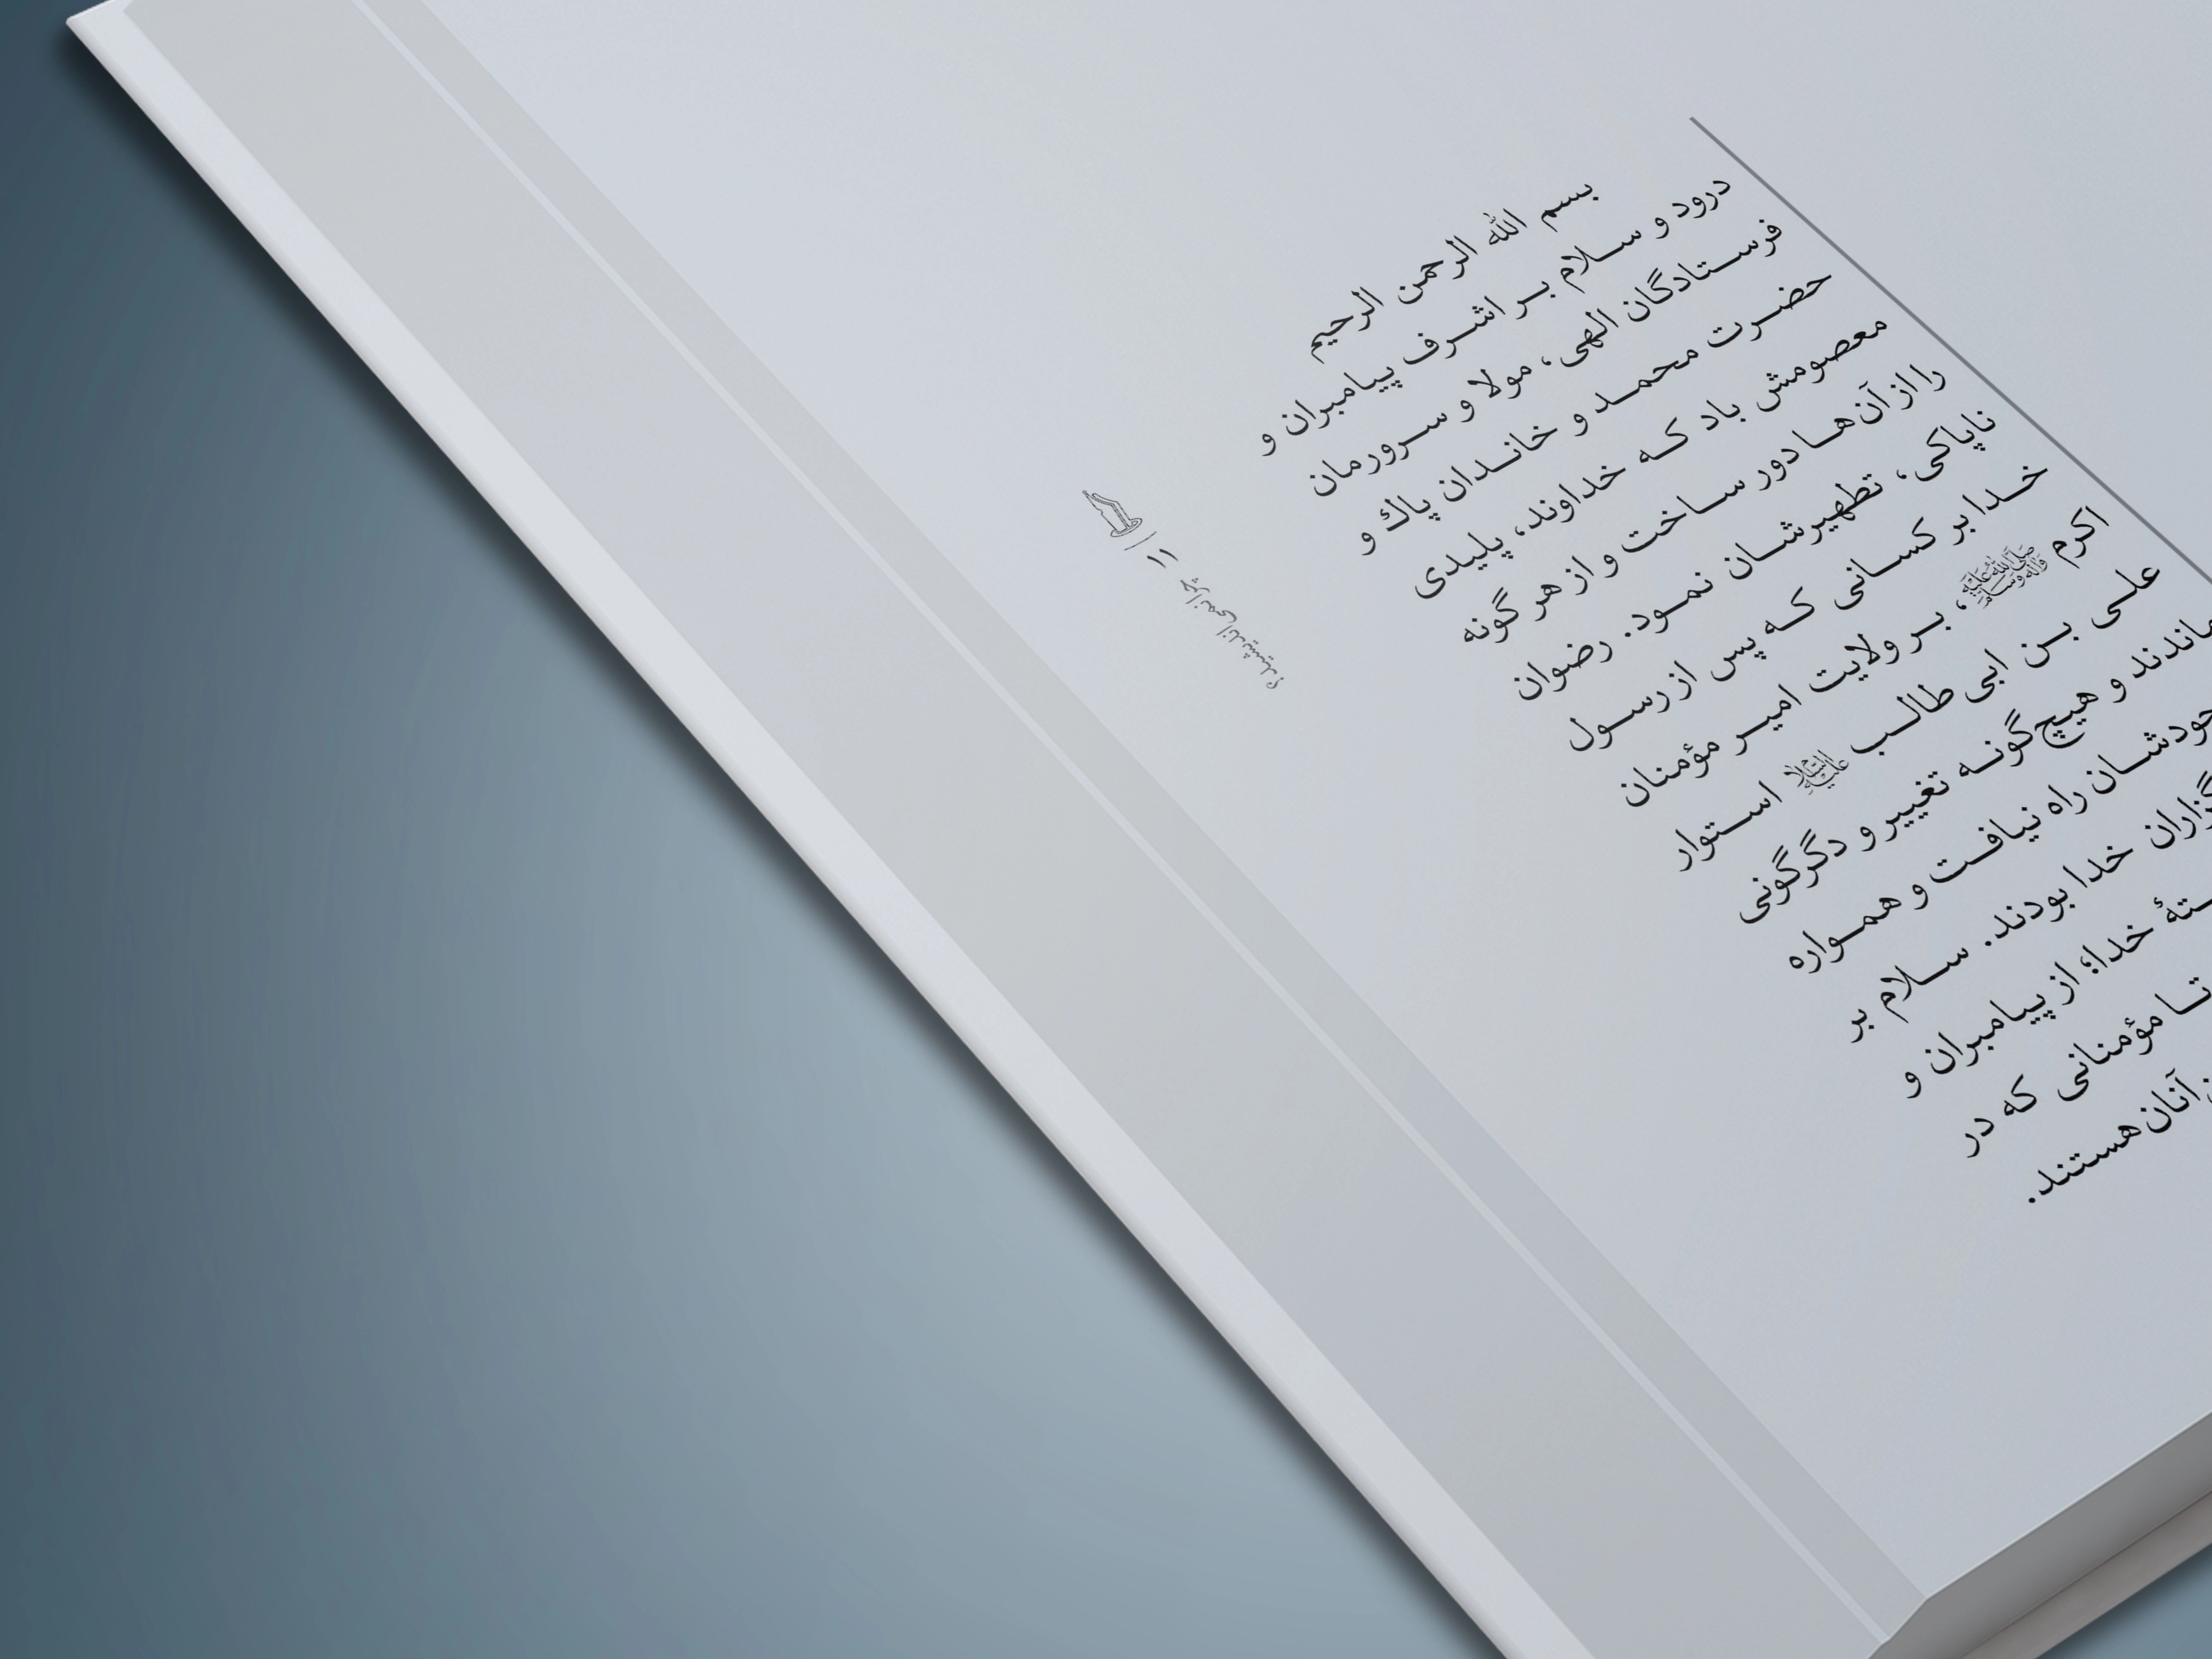 بسم الله الرحمن الرحیم
درود و سلام بر اشرف پیامبران و
فرستادگان الهی، مولا و سرورمان
حضرت محمد و خاندان پاك و
معصومش باد که خداوند، پلیدی
را از آن‌ها دور ساخت و از هر گونه
ناپاکی، تطهیرشان نمود. رضوان
خدا بر کسانی که پس از رسول
اکرم ﷺ، بر ولایت امیر مؤمنان
علی بن ابی طالب علیه‌السلام استوار
ماندند و هیچ‌گونه تغییر و دگرگونی
خودشان راه نیافت و همواره
خدا بودند. سلام بر
خدا؛ از پیامبران و
تا مؤمنانی که در
آنان هستند.
۱۱ چرا نمی‌اندیشید؟